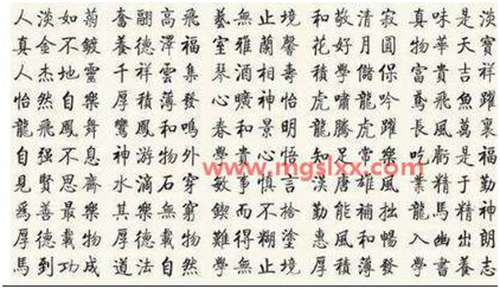 人淡如菊 奮翮高飛 藝無止境 和敬清寂 真味是淡
真金不鍍 養德澤福 室雅蘭馨 花好月圓 物華天寶
人杰地靈 千祥雲集 琴酒相壽 積學儲 富貴吉祥
怡然自樂 厚積薄發 心曠神怡 虎嘯龍吟 鳶飛魚躍
龍飛鳳舞 鸞鳳和鳴 春和景明 龍騰虎躍 長風萬裏
自强不息 神游物外 學貴心悟 知足常樂 吃虧是福
見賢思齋 水滴石穿 敏事慎言 漢唐雄風 業精于勤
爲善最樂 其樂無窮 鍥而不捨 勤能補拙 龍馬精神
厚德載物 厚德載物 難得糊塗 惠風和暢 入幽出朗
馬到功成 道法自然 學無止境 厚積薄發 學書養志
www.mgslxx.com